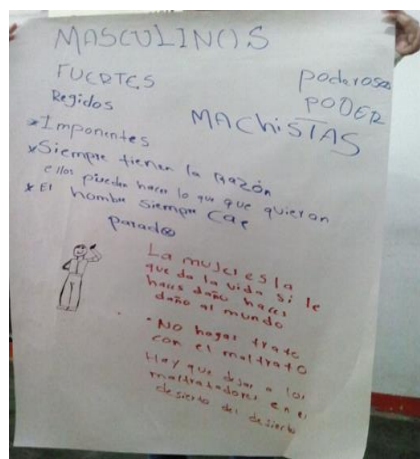 MASCULINOS
FUERTES
Regidos
poderosos
PODER
MACHISTAS
*Imponentes
*Siempre tienen la RAZÓN
ellos pueden hacer lo que que quieran
*El hombre siempre CAE
parado
La mujer es la
que da la vida si le
haces daño haces
daño al mundo
- No hagas trato
con el maltrato
Hay que dejar a los
maltratadores en el
desierto del desierto